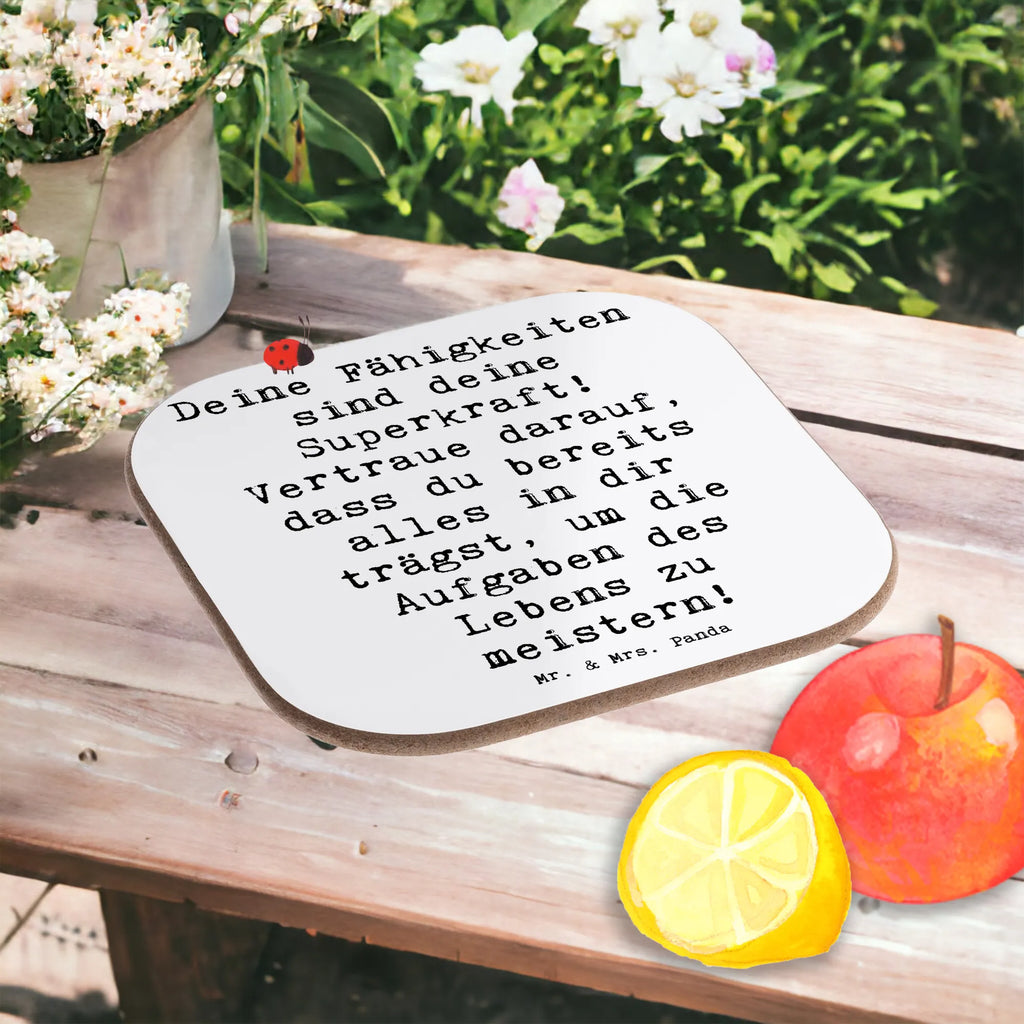 Deine Fähigkeiten
sind deine
Superkraft!
Vertraue darauf,
dass du bereits
alles in dir
trägst, um die
Aufgaben des
Lebens zu
meistern!
Mr. & Mrs. Panda